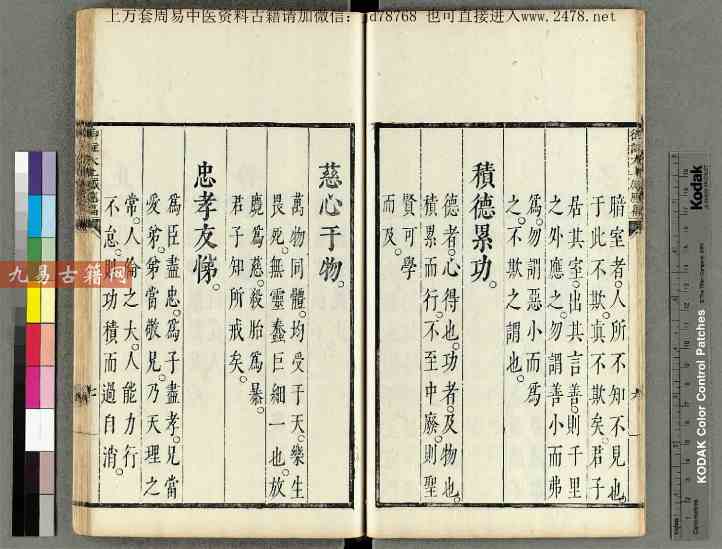 上万套周易中医资料古籍请加微信: d78768 也可直接进入www.2478.net
暗室者。人所不知不見也。
于此不欺。真不欺矣。君子
居其室。出其言善。則千里
之外應之。勿謂善小而弗
爲。勿謂惡小而爲
之。不欺之謂也。
積德累功。
德者。心得也。功者。及物也。
積累而行。不至中廢。則聖
賢可學
而及。
慈心于物。
萬物同體。均受于天。樂生
畏死。無靈蠢巨細一也。放
麑爲慈。殺胎爲暴。
君子知所戒矣。
忠孝友悌。
爲臣盡忠。爲子盡孝。兄當
愛弟。弟當敬兄。乃天理之
常。人倫之大。人能力行
不怠。則功積而過自消。
九易古籍网
Kodak
KODAK Color Control Patches